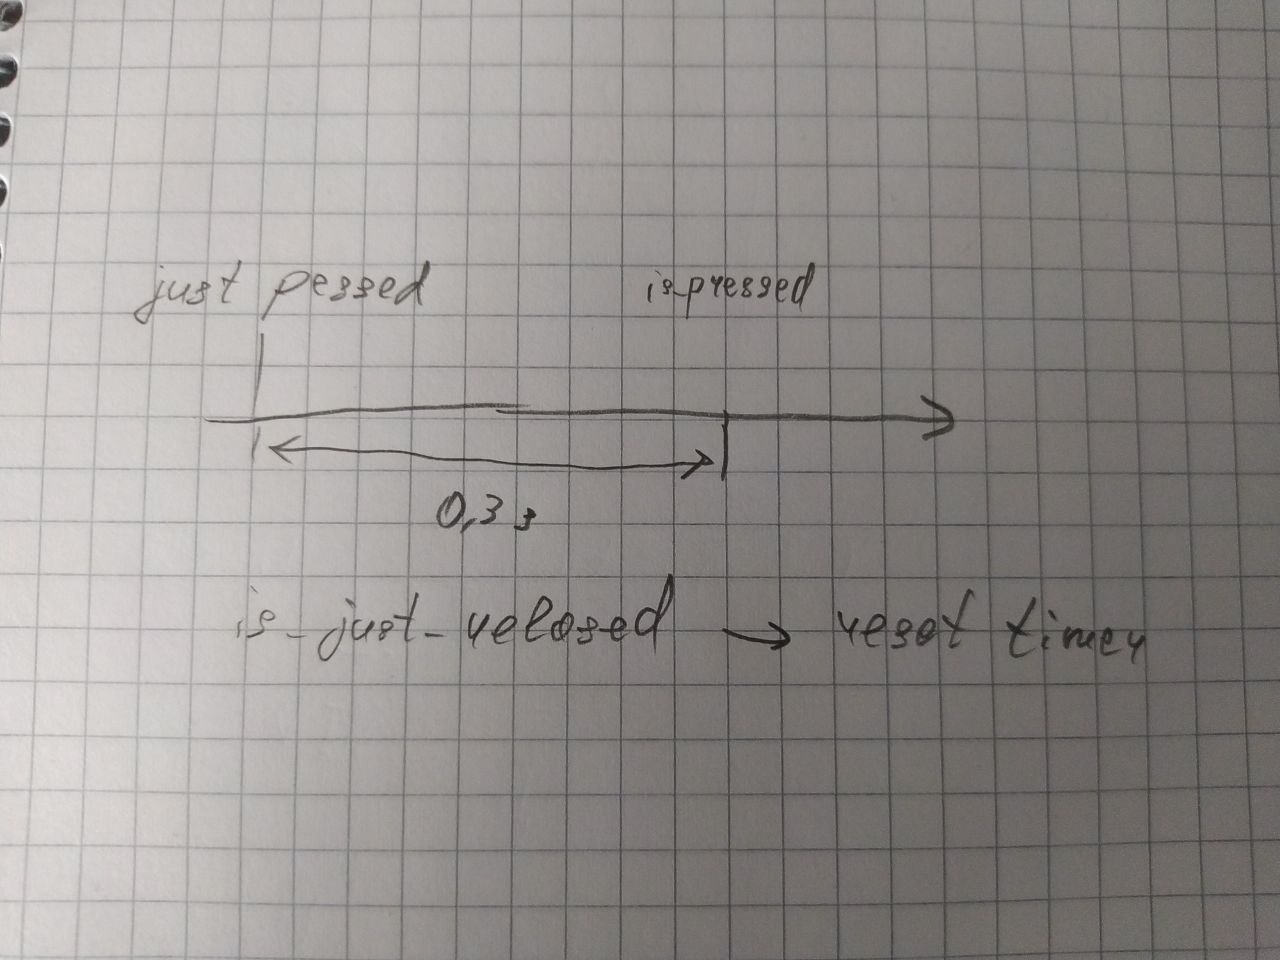 just pessed is-pressed
0,3 s
is-just-relosed → reset timer